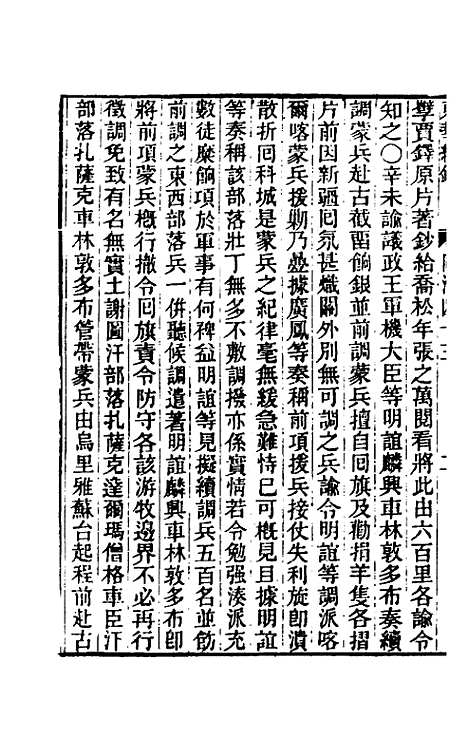 孽賈鐸原片著鈔給喬松年張之萬閱看將此由六百里各諭令
知之〇辛未諭議政王軍機大臣等明誼麟興車林敦多布奏續
調蒙兵赴古截留餉銀並前調蒙兵擅自回旗及勸捐羊隻各摺
片前因新疆回氛甚熾關外別無可調之兵諭令明誼等調派喀
爾喀蒙兵援勦乃據廣鳳等奏稱前項援兵接仗失利旋卽潰
散折回科城是蒙兵之紀律毫無緩急難恃已可概見且據明誼
等奏稱該部落壯丁無多不敷調撥亦係實情若令勉强湊派充
數徒糜餉項於軍事有何裨益明誼等見擬續調兵五百名並飭
前調之東西部落兵一倂聽候調遣著明誼麟興車林敦多布卽
將前項蒙兵概行撤令回旗責令防守各該游牧邊界不必再行
徵調免致有名無實土謝圖汗部落扎薩克達爾瑪僧格車臣汗
部落扎薩克車林敦多布管帶蒙兵由烏里雅蘇台起程前赴古